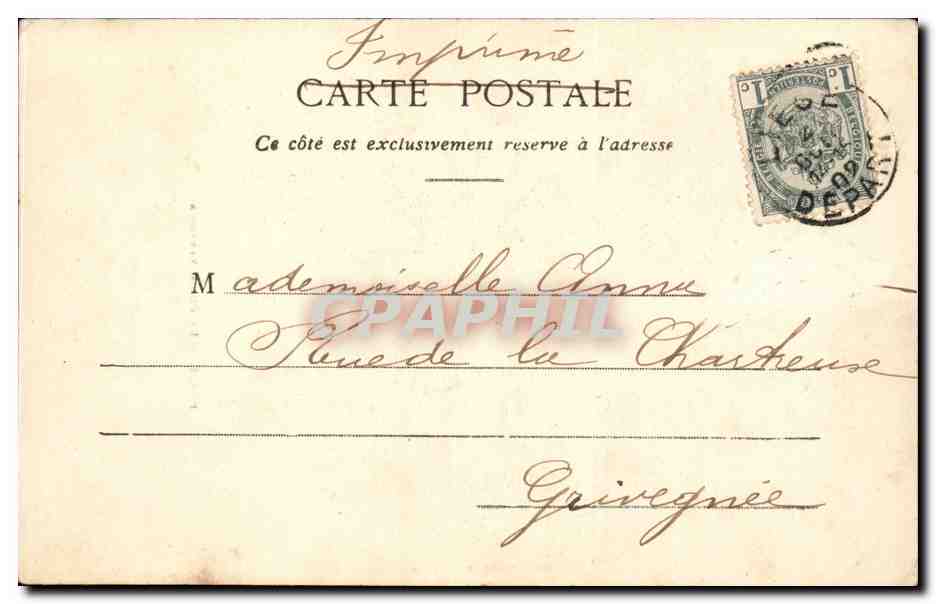 Imprimé
CARTE POSTALE
Ce côté est exclusivement reservé à l'adresse
1c 1c
LIEGE
DEPART
Mademoiselle Anna
Rue de la Chartreuse
Grivegnée
CPAPHIL